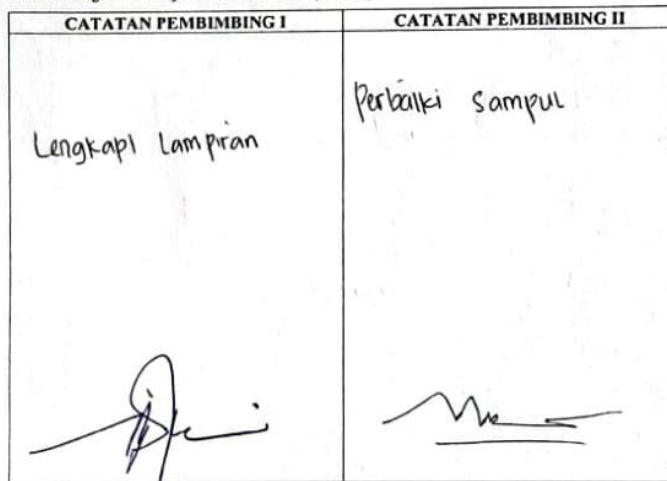 CATATAN PEMBIMBING I
CATATAN PEMBIMBING II
Lengkapi Lampiran
Perbaiki Sampul